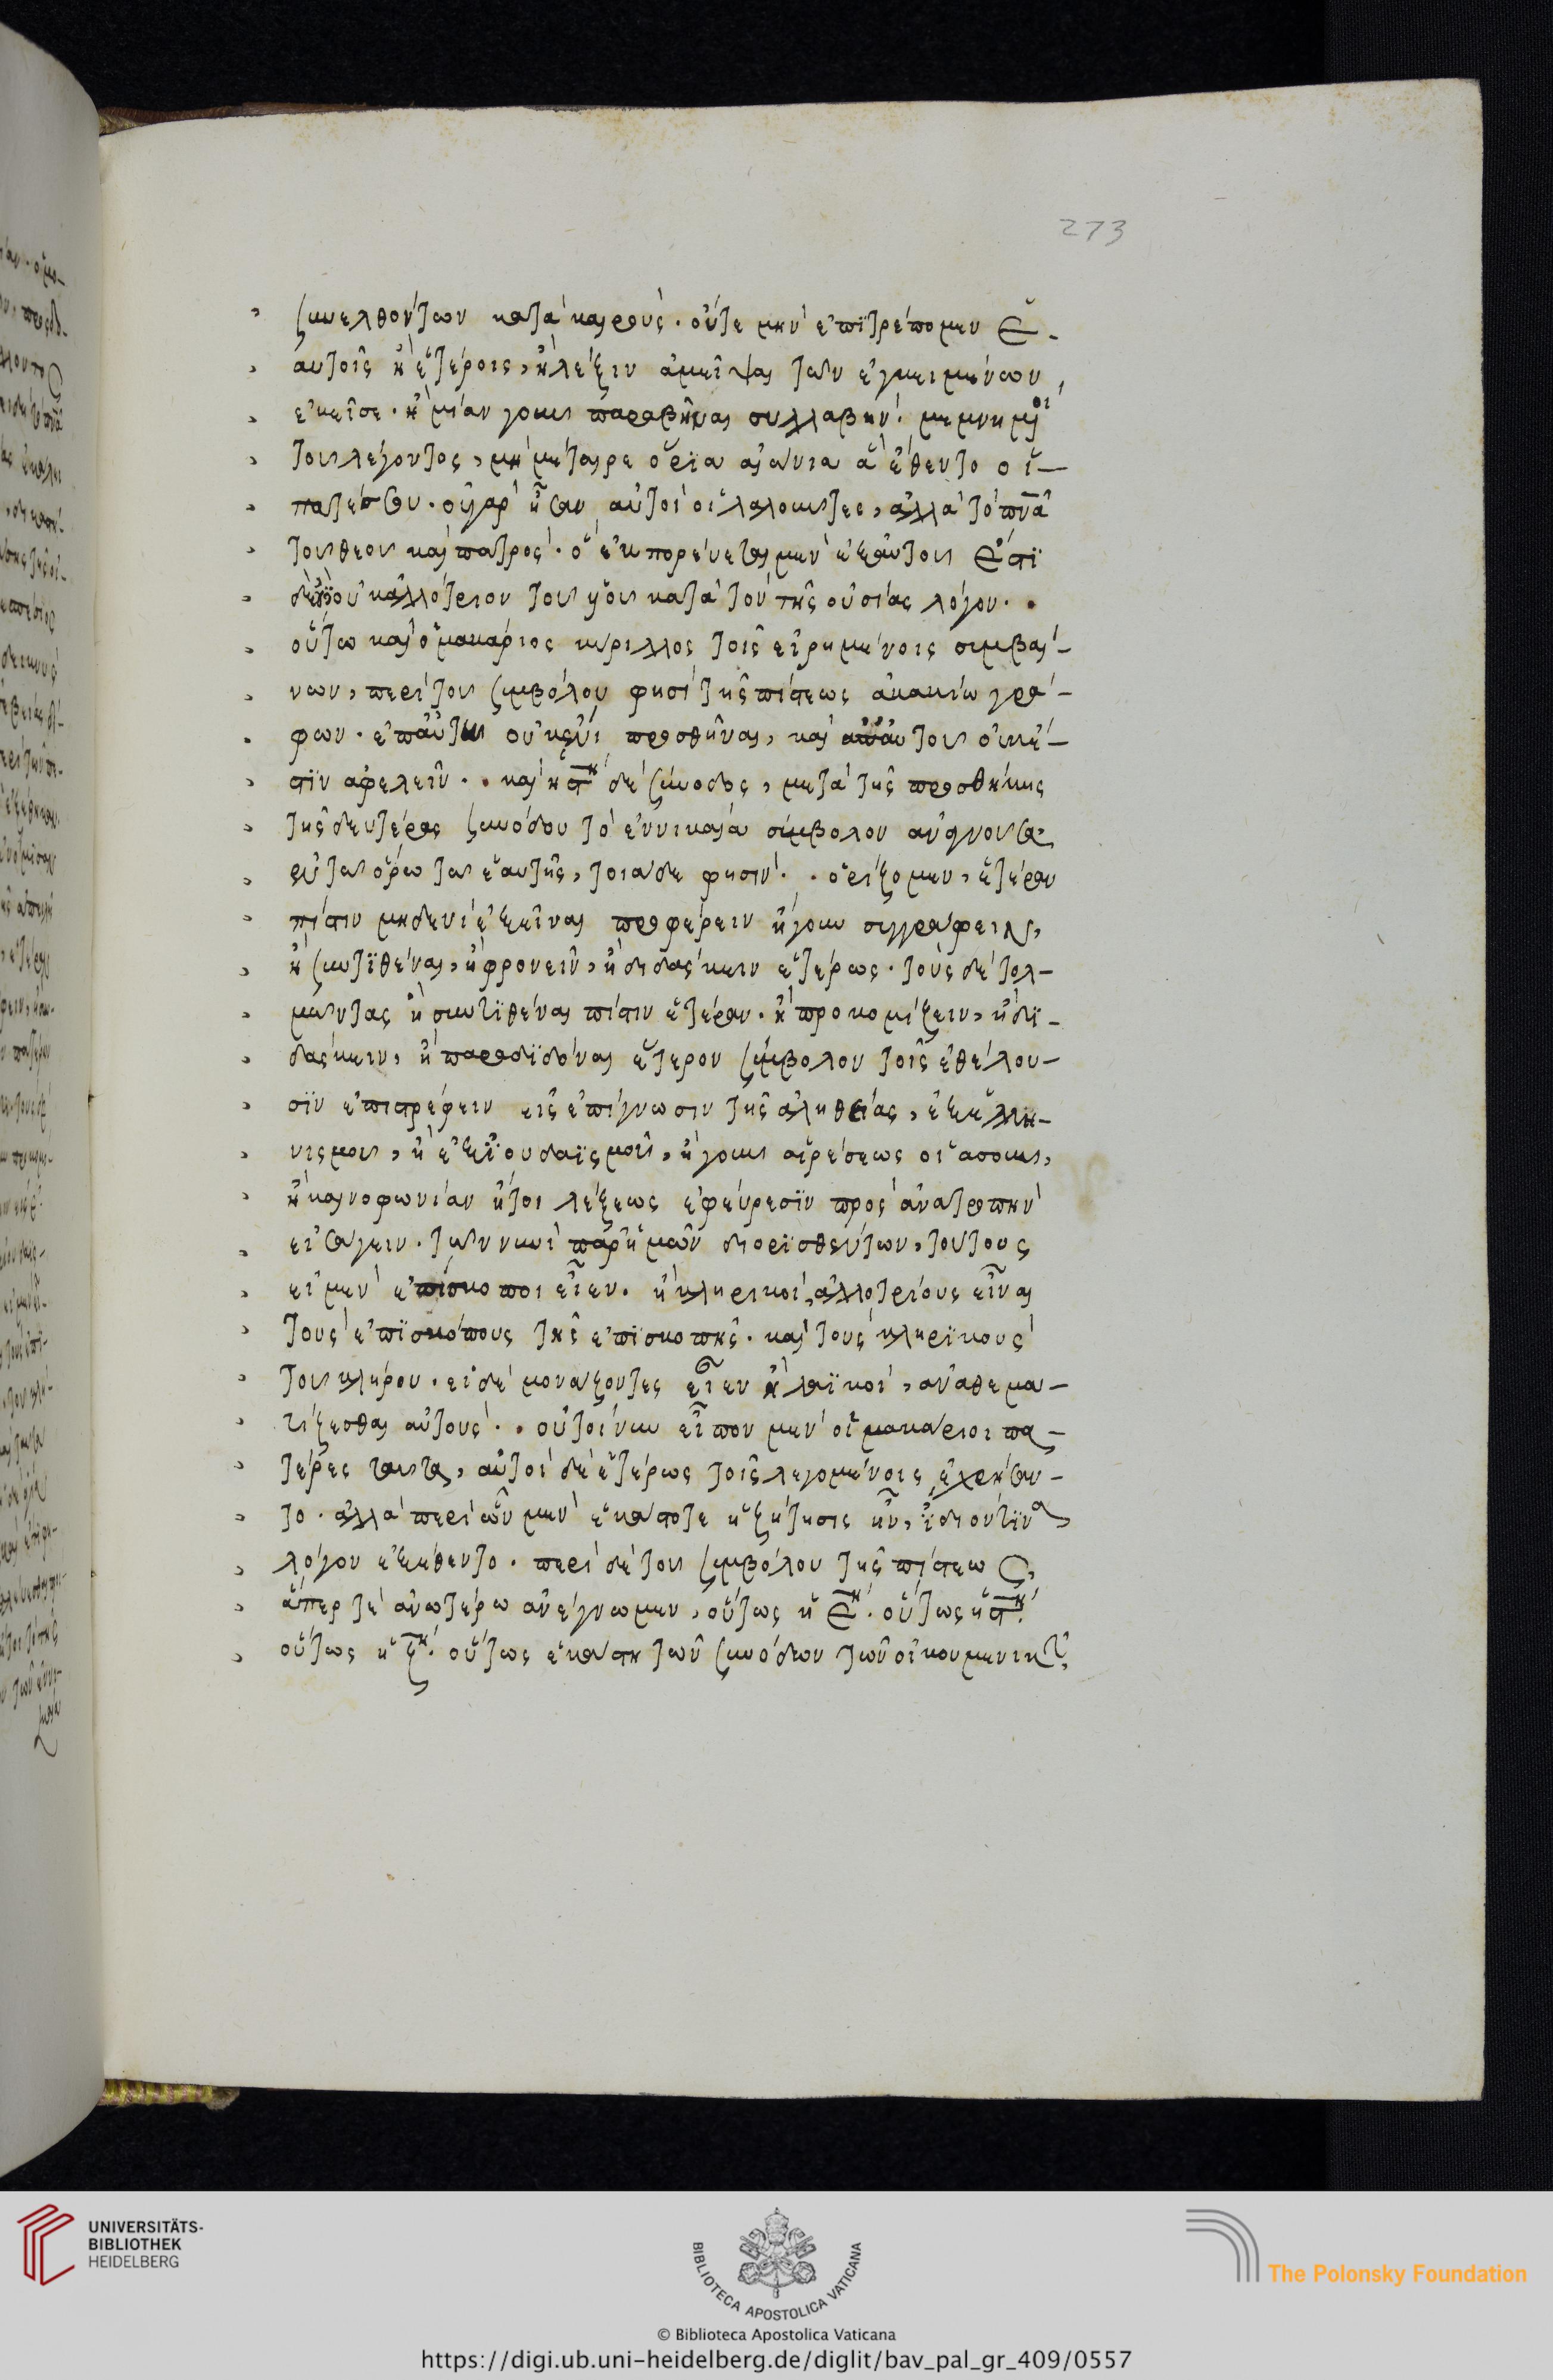 273
συνελθόντων κατὰ καιρούς. οὔτε μὴν ἐπιτρέπομεν ἑ-
αυτοῖς ἢ ἑτέροις, ἢ λέξιν ἀμεῖψαι τῶν ἐγκειμένων
ἐκεῖσε. ἢ μίαν γοῦν παραβῆναι συλλαβήν. μεμνημένοι
τοῦ λέγοντος, μὴ μέταιρε ὅρια αἰώνια ἃ ἔθεντο οἱ
πατέρες σου. οὐ γὰρ ἦσαν αὐτοὶ οἱ λαλοῦντες, ἀλλὰ τὸ πνα
τοῦ θεοῦ καὶ πατρός. ὃ ἐκπορεύεται μὲν ἐξ αὐτοῦ ἔστι
δὲ οὐκ ἀλλότριον τοῦ υἱοῦ κατὰ τὸν τῆς οὐσίας λόγον.
οὕτω καὶ ὁ μακάριος κύριλλος τοῖς εἰρημένοις συμβαί-
νων, περὶ τοῦ συμβόλου φησὶ τῆς πίστεως ἀκακίω γρά-
φων. ἐπ' αὐτῶ οὐκ ἔνι προσθῆναι, καὶ ἀπ' αὐτοῦ οὐκ ἔ-
στιν ἀφελεῖν. καὶ ἡ δὲ σύνοδος, μετὰ τῆς προσθήκης
τῆς δευτέρας συνόδου τὸ ἐν νικαία σύμβολον ἀναγνοῦσα
ἐν τῶ ὅρω τῶ ἑαυτῆς, τοιάδε φησίν. ὁρίζομεν, ἑτέραν
πίστιν μηδενὶ ἐξεῖναι προφέρειν ἤγουν συγγράφειν,
ἢ συντιθέναι, ἢ φρονεῖν, ἢ διδάσκειν ἑτέρως. τοὺς δὲ τολ-
μῶντας ἢ συντιθέναι πίστιν ἑτέραν. ἢ προκομίζειν, ἢ δι-
δάσκειν, ἢ παραδιδόναι ἕτερον σύμβολον τοῖς ἐθέλου-
σιν ἐπιστρέφειν εἰς ἐπίγνωσιν τῆς ἀληθείας, ἐξ ἑλλη-
νισμοῦ, ἢ ἐξ ἰουδαϊσμοῦ, ἤγουν αἱρέσεως οἱασοῦν,
ἢ καινοφωνίαν ἤτοι λέξεως ἐφεύρεσιν πρὸς ἀνατροπὴν
εἰσάγειν. τῶν νυνὶ παρ' ἡμῶν διορισθέντων, τούτους
εἰ μὲν ἐπίσκοποι εἶεν. ἢ κληρικοί, ἀλλοτρίους εἶναι
τοὺς ἐπισκόπους τῆς ἐπισκοπῆς. καὶ τοὺς κληρικοὺς
τοῦ κλήρου. εἰ δὲ μονάζοντες εἶεν ἢ λαϊκοί, ἀναθεμα-
τίζεσθαι αὐτούς. οὗτοι νῦν εἶπον μὲν οἱ μακάριοι πα-
τέρες ταῦτα, αὐτοὶ δὲ ἑτέρως τοῖς λεγομένοις ἐχρήσαν-
το. ἀλλὰ περὶ ὧν μὲν ἑκάστοτε ἡ ζήτησις ἦν, ἰδιόντινα
λόγον ἐξέθεντο. περὶ δὲ τοῦ συμβόλου τῆς πίστεως,
ἅπερ τὲ ἀνωτέρω ἀνέγνωμεν, οὕτως ἡ ε. οὕτως ἡ ϛ.
οὕτως ἡ ζ. οὕτως ἑκάστη τῶν συνόδων τῶν οἰκουμενικῶν
UNIVERSITÄTS-
BIBLIOTHEK
HEIDELBERG
BIBLIOTECA APOSTOLICA VATICANA
The Polonsky Foundation
© Biblioteca Apostolica Vaticana
https://digi.ub.uni-heidelberg.de/diglit/bav_pal_gr_409/0557